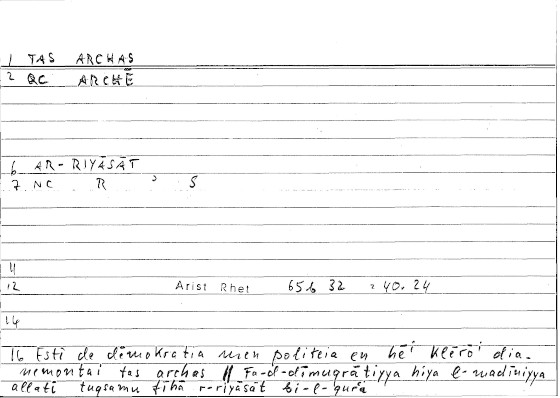 1 TAS ARCHAS
2 QC ARCHĒ
6 AR-RIYĀSĀT
7 NC R ʾ S
11
12 Arist Rhet 65b 32 = 40.24
14
16 Esti de dēmokratia men politeia en hēi klērōi dia-
nemontai tas archas || Fa-d-dīmuqrāṭiyya hiya l-madīniyya
allatī tuqsamu fīhā r-riyāsāt bi-l-qurʿa